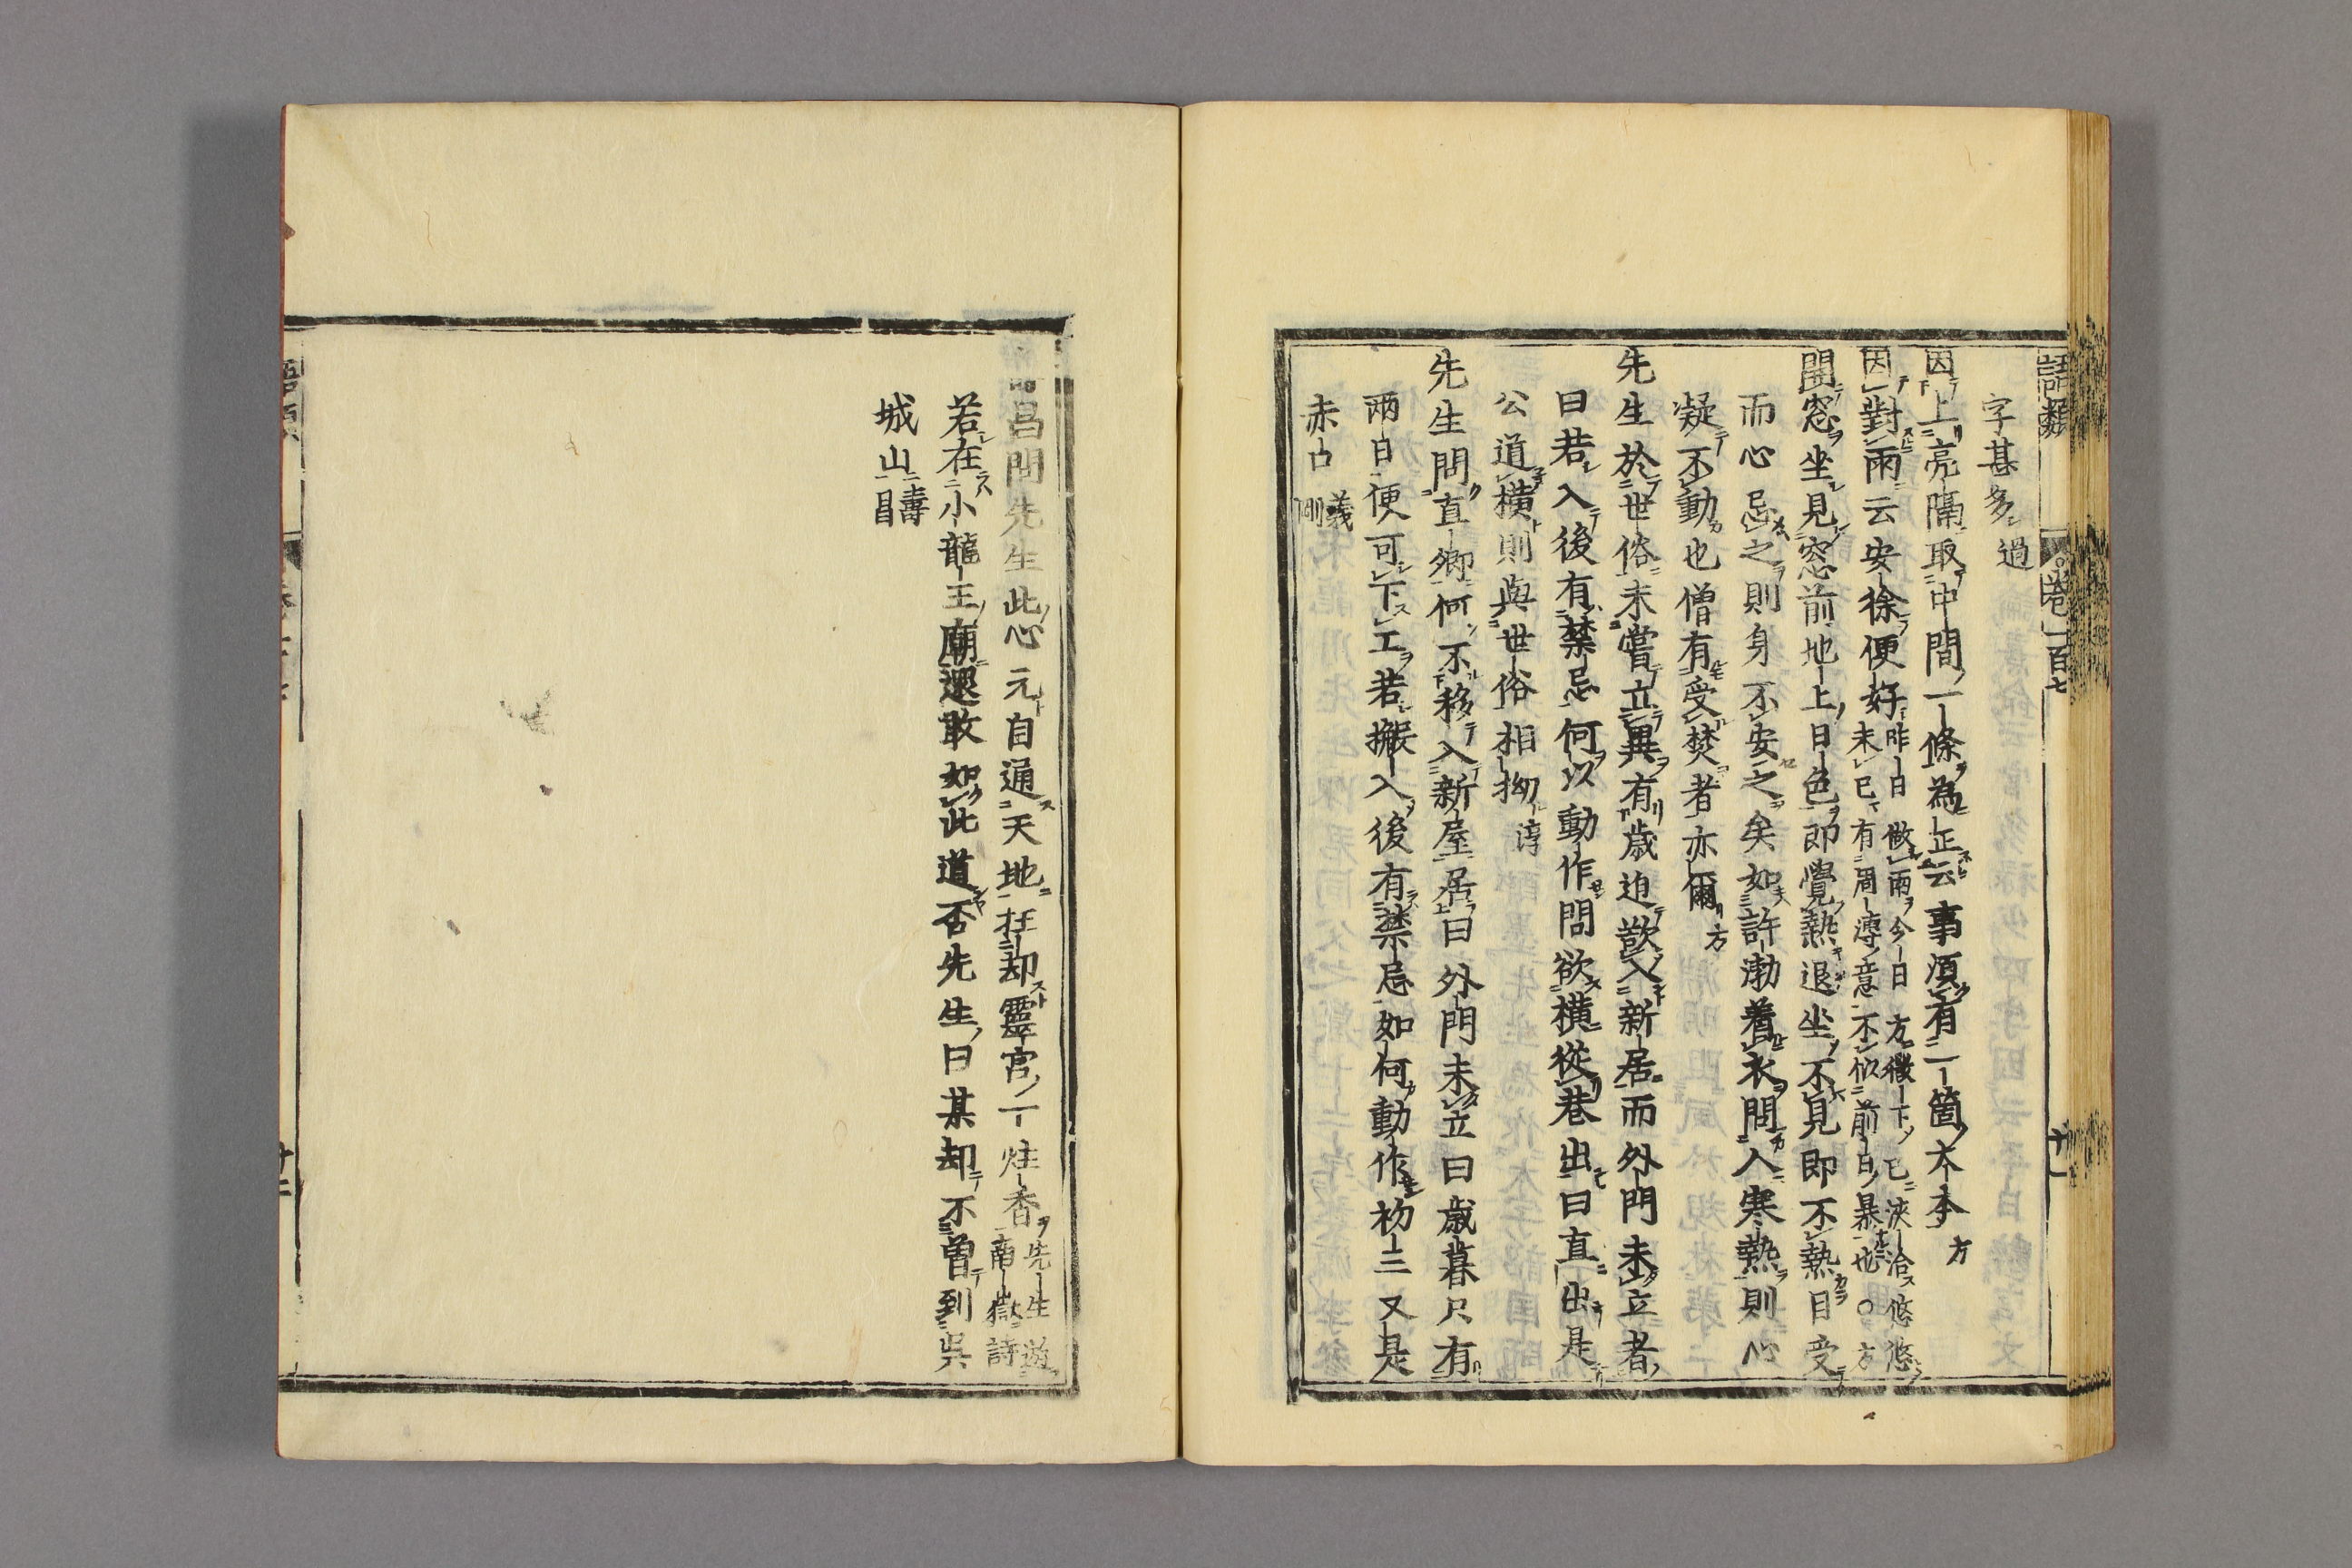 語類
卷一百七
十一
字甚多過
因上亮隔取中間一條為正云事須有一箇大本方
因對雨云安徐便好昨日做雨今日方微下已浹洽悠悠
未已有周溥意不似前日暴也○方
開窓坐見窓前地上日色即覺熱退坐不見即不熱目受
而心忌之則身不安之矣如許渤着衣問人寒熱則心
凝不動也僧有受焚者亦爾方
先生於世俗未嘗立異有歲迫欲入新居而外門未立者
曰若入後有禁忌何以動作問欲橫從巷出曰直出是
公道橫則與世俗相拗淳
先生問直卿何不移入新屋居曰外門未立曰歲暮只有
兩日便可下工若搬入後有禁忌如何動作初三又是
赤口義剛
昌問先生此心元自通天地枉却靈宮一炷香先生遊
南嶽詩
若在小龍王廟還敢如此道否先生曰某却不曾到吳
城山壽昌
十二